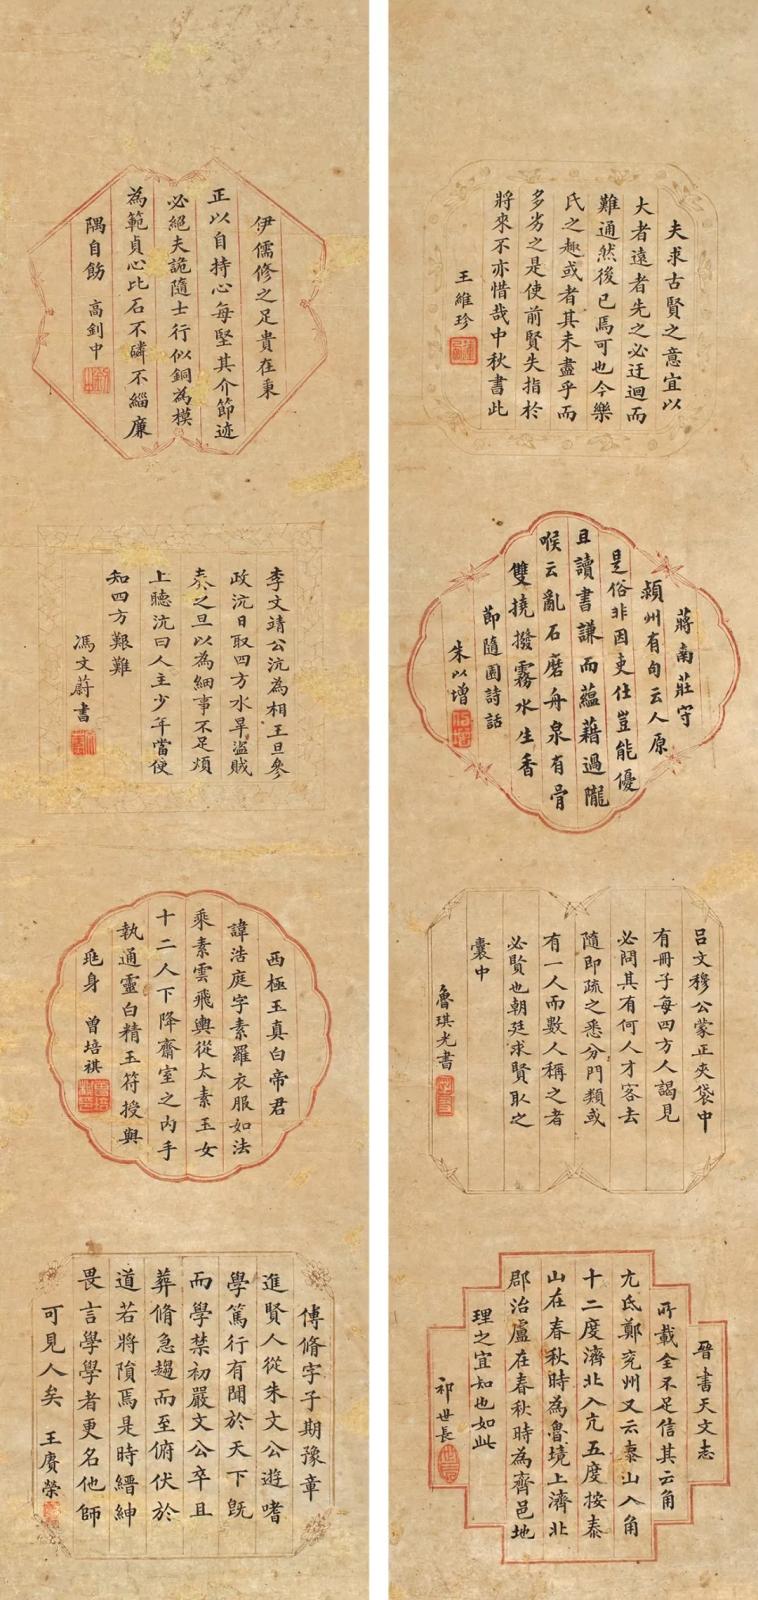 夫求古賢之意宜以
大者遠者先之必迂迴而
難通然後已焉可也今樂
氏之趣或者其未盡乎而
多劣之是使前賢失指於
將來不亦惜哉中秋書此
王維珍
蔣南莊守
潁州有句云人原
是俗非因吏仕豈能優
且讀書謙而蘊藉過隴
喉云亂石磨舟泉有骨
雙撓撥霧水生香
節隨園詩話
朱以增
呂文穆公蒙正夾袋中
有冊子每四方人謁見
必問其有何人才客去
隨即疏之悉分門類或
有一人而數人稱之者
必賢也朝廷求賢取之
囊中
魯琪光書
晉書天文志
所載全不足信其云角
亢氐鄭兗州又云泰山入角
十二度濟北入亢五度按泰
山在春秋時為魯境上濟北
郡治盧在春秋時為齊邑地
理之宜知也如此
祁世長
伊儒修之足貴在秉
正以自持心每堅其介節迹
必絕夫詭隨士行似銅為模
為範貞心比石不磷不緇廉
隅自飭 高釗中
李文靖公沆為相王旦參
政沆日取四方水旱盜賊
奏之旦以為細事不足煩
上聽沆曰人主少年當使
知四方艱難
馮文蔚書
西極玉真白帝君
諱浩庭字素羅衣服如法
乘素雲飛輿從太素玉女
十二人下降齋室之內手
執通靈白精玉符授與
兆身 曾培祺
傅脩字子期豫章
進賢人從朱文公遊嗜
學篤行有聞於天下既
而學禁初嚴文公卒且
葬脩急趨而至俯伏於
道若將隕焉是時縉紳
畏言學學者更名他師
可見人矣 王賡榮